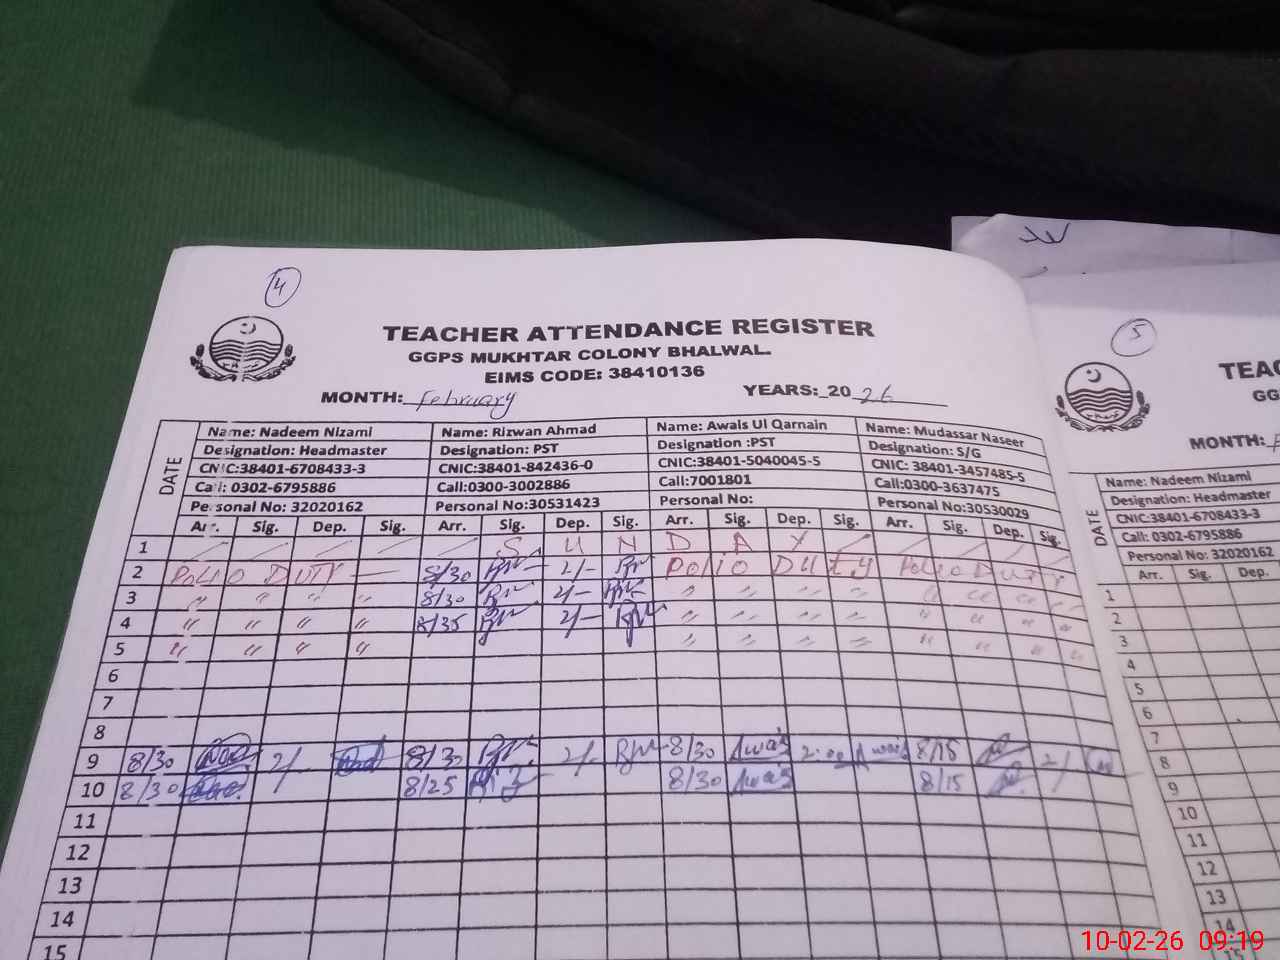 4
TEACHER ATTENDANCE REGISTER
GGPS MUKHTAR COLONY BHALWAL.
EIMS CODE: 38410136
MONTH: February YEARS: 2026
DATE
Name: Nadeem Nizami Name: Rizwan Ahmad Name: Awais Ul Qarnain Name: Mudassar Naseer
Designation: Headmaster Designation: PST Designation :PST Designation: S/G
CNIC:38401-6708433-3 CNIC:38401-842436-0 CNIC:38401-5040045-5 CNIC: 38401-3457485-5
Call: 0302-6795886 Call:0300-3002886 Call:7001801 Call:0300-3637475
Personal No: 32020162 Personal No:30531423 Personal No: Personal No:30530029
Arr. Sig. Dep. Sig. Arr. Sig. Dep. Sig. Arr. Sig. Dep. Sig. Arr. Sig. Dep. Sig.
1 S U N D A Y
2 Polio DUTY 8/30 2/- Polio DUty Polio DUTY
3 " " " " 8/30 2/- " " " " " " " "
4 " " " " 8/35 2/- " " " " " " " "
5 " " " " " " " " " " " "
6
7
8
9 8/30 2/- 8/30 2/- 8/30 Awais 2:00 Awais 8/15 2/
10 8/30 8/25 Riz 8/30 Awais 8/15
11
12
13
14
15
5
TEAC
GG
MONTH: F
DATE
Name: Nadeem Nizami
Designation: Headmaster
CNIC:38401-6708433-3
Call: 0302-6795886
Personal No: 32020162
Arr. Sig. Dep.
1
2
3
4
5
6
7
8
9
10
11
12
13
14
15
10-02-26 09:19